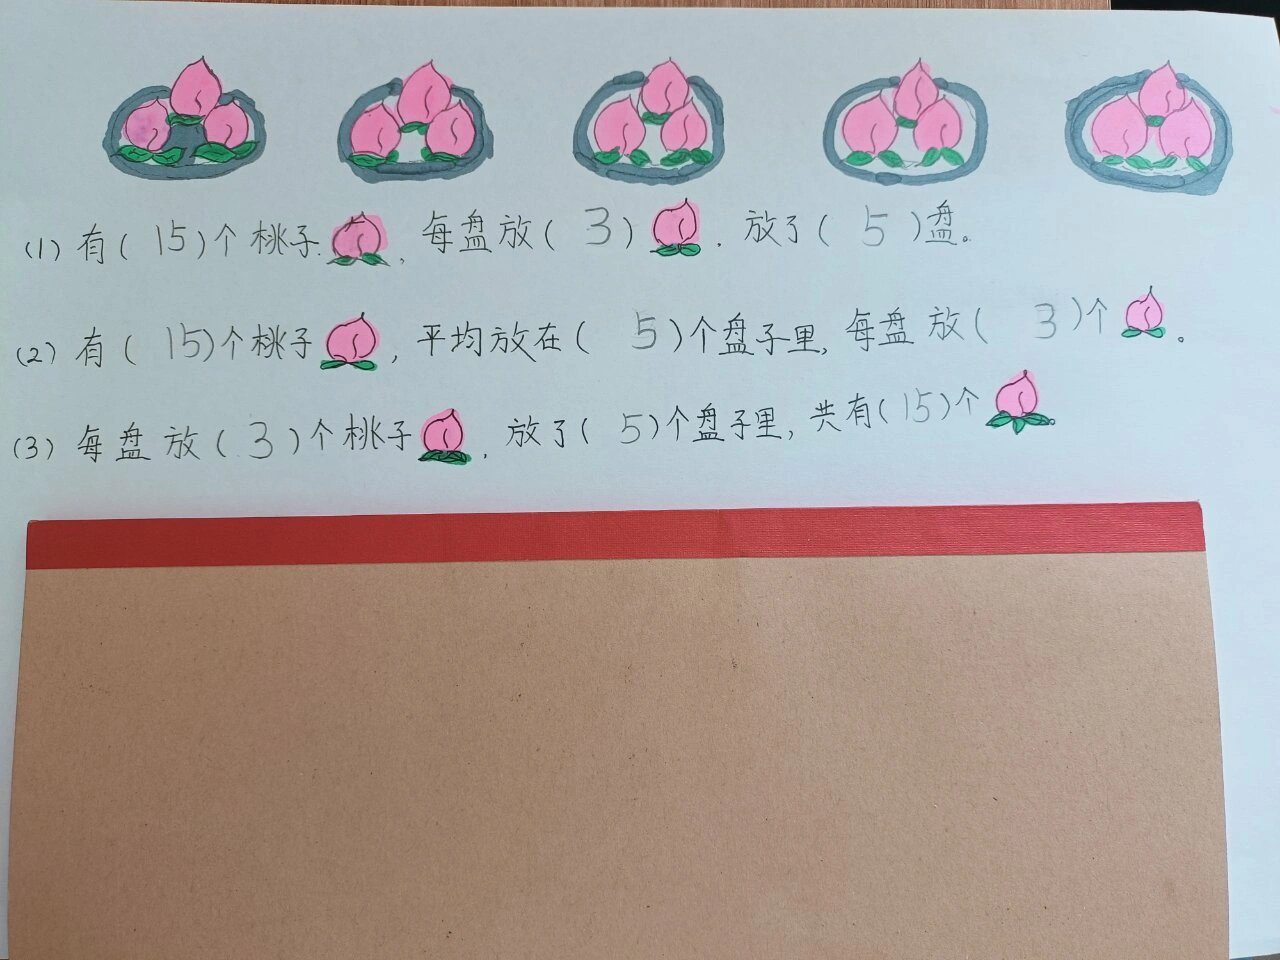 (1) 有(15)个桃子,每盘放(3).放了(5)盘。
(2) 有(15)个桃子,平均放在(5)个盘子里,每盘放(3)个。
(3) 每盘放(3)个桃子,放了(5)个盘子里,共有(15)个